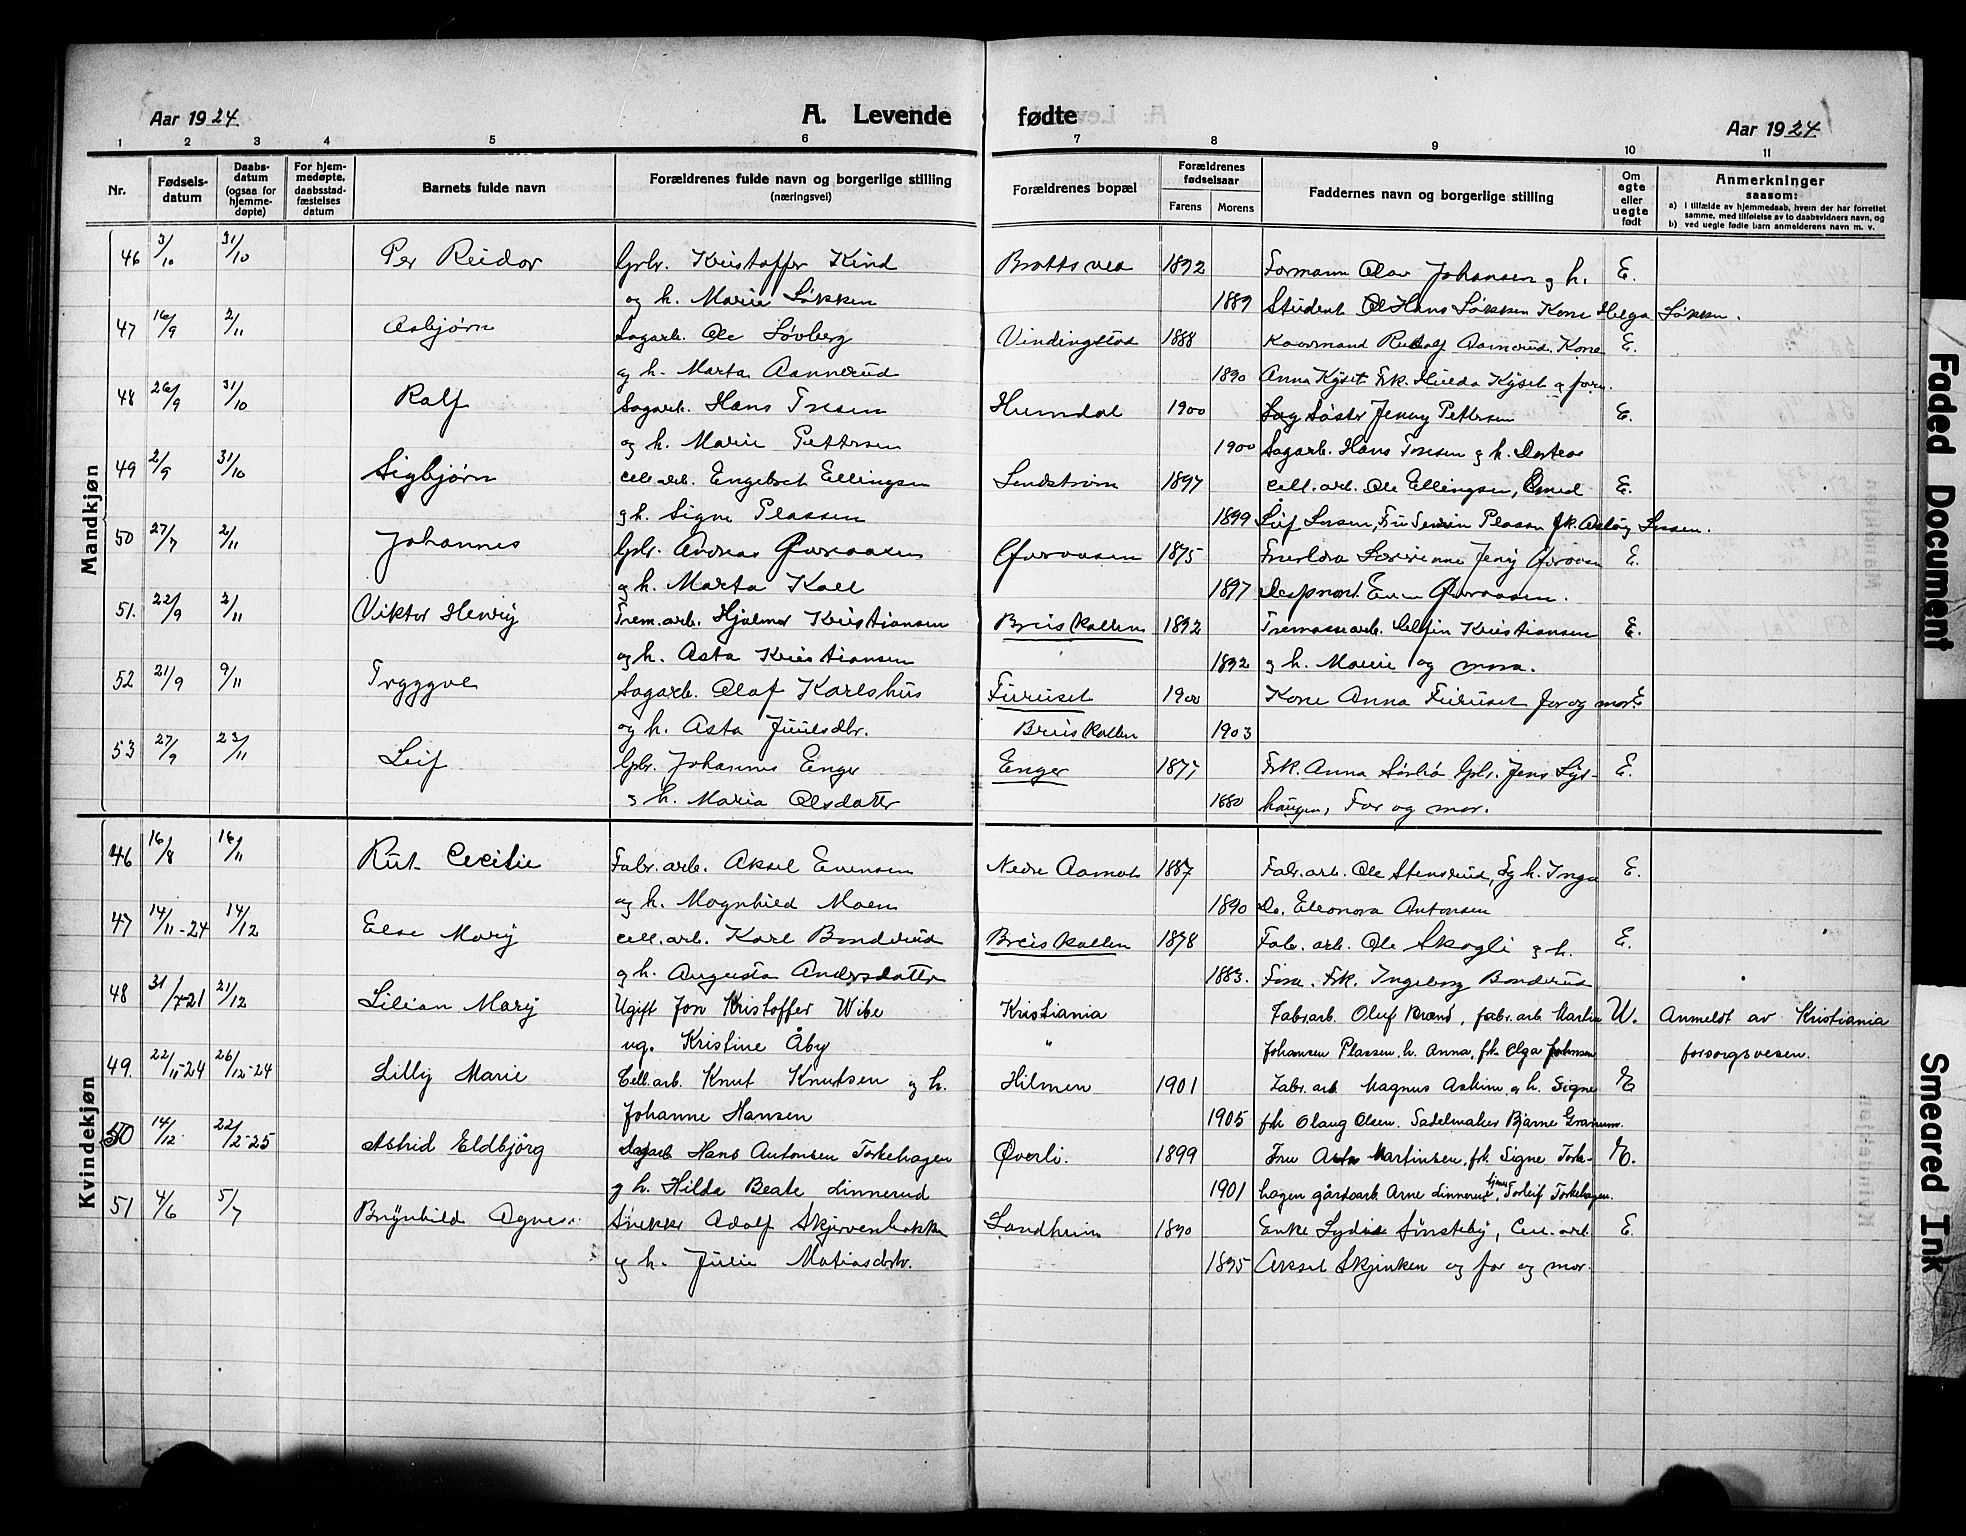 Aar 1924
A. Levende fødte
Aar 1924
1 2 3 4 5 6 7 8 9 10 11
Nr.
Fødsels-
datum
Daabs-
datum
(ogsaa for
hjemme-
døpte)
For hjem-
medøpte,
daabsstad-
fæstelses
datum
Barnets fulde navn
Forældrenes fulde navn og borgerlige stilling
(næringsvei)
Forældrenes bopæl
Forældrenes
fødselsaar
Farens Morens
Faddernes navn og borgerlige stilling
Om
egte
eller
uegte
født
Anmerkninger
saasom:
a) i tilfælde av hjemmedaab, hvem der har forrettet
samme, med tilføielse av to daabsvidners navn, og
b) ved uegte fødte barn anmelderens navn m. v.
Mandkjøn
46 3/10 31/10 Per Reidar Gbr. Kristoffer Kind 1892 Formann Olav Johansen g h. E.
og h. Marie Løkken 1889 Student Hans Løkken Kone Helga Løkken.
47 16/9 2/11 Asbjørn Sagarb. Ole Løvberg Vindingstad 1888 Aamerud. Kone E.
og h. Marta Aannerud 1890 Anna Kyset Frk. Hulda Kyset
48 26/9 31/10 Ralf Sagarb. Hans Tresen Humdal 1900 Jenny Pettersen E.
og h. Marie Pettersen 1900 Sagarb. Hans Tresen g h. Dortea
49 2/9 31/10 Sigbjørn Cell. arb. Engebret Ellingsen Lundstrøm 1897 Cell. arb. Ole Ellingsen, Smed E.
g h. Signe Plassen 1899 Leif Larsen,
50 27/7 2/11 Johannes Gbr. Andreas 1875 E.
g h. Marta Kall 1897
51. 22/9 2/11 Viktor Henry Trem. arb. Hjalmar Kristiansen Breiskallen 1892 Kristiansen E.
og h. Asta Kristiansen 1892 g h. Marie og mora.
52 21/9 9/11 Trygve Sagarb. Olaf Karlshus Furuset 1900 Kone Anna Furuset far og mor E
og h. Asta Juulsdtr. Breiskallen 1903
53 27/9 23/11 Leif Gbr. Johannes Enger Enger 1877 Frk. Anna Gbr. Jens E.
g h. Maria Olsdatter 1880 haugen, Far og mor.
Kvindekjøn
46 16/8 16/11 Rut Cecilie Fabr. arb. Aksel Evensen Nedre Aamot 1887 Fabr. arb. Ole Stensrud, h. Inga E.
og h. Magnhild Moen 1890 Do. Eleonora Antonsen
47 14/11-24 14/12 Else Mary Cell. arb. Karl Bonderud Breiskallen 1878 Fabr. arb. Ole Skogli g h. E.
g h. Augusta Andersdatter 1883. Frk. Ingeborg Bonderud
48 31/7-21 21/12 Lilian Mary Ugift Jon Kristoffer Wibe Kristiania Fabr.arb. Oluf Brænd, fabr. arb. Martin U. Anmeldt av Kristiania
ug. Kristine Åby " Johansen Plassen, h. Anna, frk. Olga Johansen forsorgsvesen.
49. 22/11-24 26/12-24 Lilly Marie Cell. arb. Knut Knutsen g h. Hilmen 1901 Fabr. arb. Magnus Askim g h. Signe E
Johanne Hansen 1905 frk Olaug Olsen. Sadelmaker Bjarne Granum.
50 14/12. 22/2-25 Astrid Eldbjørg Sagarb Hans Antonsen Torkehagen Øverli. 1899 Fru Asta Martinsen, frk. Signe Torke- E.
g h. Hilda Beate Linnerud 1901 hagen gårdsarb. Arne Linnerud, Torleif Torkehagen.
51 4/6 5/7 Brynhild Agnes. Snekker Adolf Skjervenbakken Landheim 1890 Enke Lydia Sønsteby, Cell. arb. E
g h. Julie Matiasdtr. 1895 Aksel Skjerven og far og mor.
Faded Document
Smeared Ink